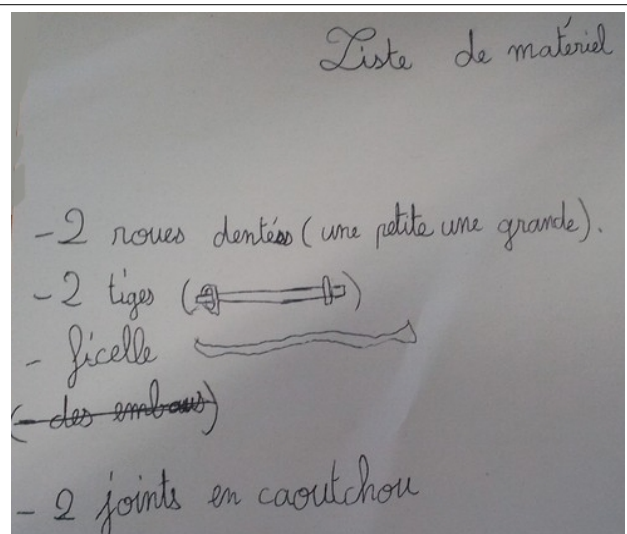 Liste de matériel
- 2 roues dentées (une petite une grande).
- 2 tiges ( )
- ficelle
(- des embous)
- 2 joints en caoutchou